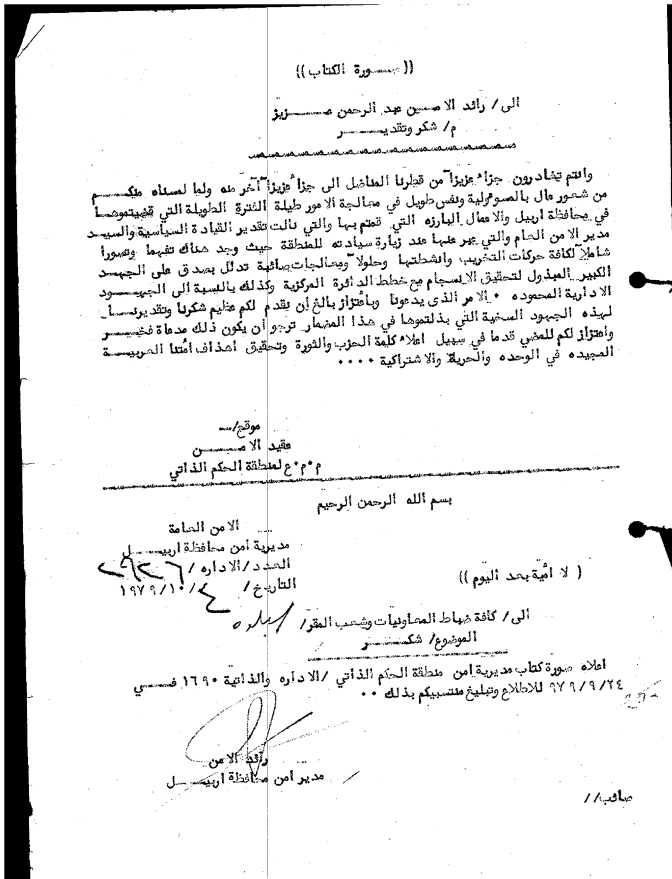 ((صـــورة الكتاب))
الى/ رائد الامـــن عبد الرحمن عـــزيز
م/ شكر وتقديـــــر
وانتم تغادرون جزءً عزيزاً من قطرنا المناضل الى جزء عزيزاً آخر منه ولما لمسناه منكـــم
من شعور عال بالمسؤولية ونفس طويل في معالجة الامور طيلة الفترة الطويلة التي قضيتموهـا
في محافظة اربيل والاعمال البارزه التي قمتم بها والتي نالت تقدير القيادة السياسية والسيـد
مدير الامن العام والتي عبر عنها عند زيارة سيادته للمنطقة حيث وجد هناك تفهما وتصورا
شاملاً لكافة حركات التخريب وانشطتها وحلولاً ومعالجات صائبة تدلل بصدق على الجهـد
الكبير المبذول لتحقيق الانسجام مع خطط الدائرة المركزية وكذلك بالنسبة الى الجهـــود
الادارية المحموده ٠ الامر الذى يدعونا وبأعتزاز بالغ ان نقدم لكم عظيم شكرنا وتقديرنـا
لهذه الجهود السخية التي بذلتموها في هذا المضمار نرجو ان يكون ذلك مدعاة فخـــر
واعتزاز لكم للمضي قدما في سبيل اعلاء كلمة الحزب والثورة وتحقيق اهداف امتنا العربيـــة
المجيده في الوحده والحرية والاشتراكية ٠٠٠٠
موقع/ـــ
عقيد الامـــن
م٠م٠ع لمنطقة الحكم الذاتي
بسم الله الرحمن الرحيم
الامن العامة
مديرية امن محافظة اربيـــل
العدد/الاداره / ٢٩٢٦
( لا امية بعد اليوم ))
التاريخ/ ٤/ ١٠/ ١٩٧٩
الى/ كافة ضباط المعاونيات وشعب المقر/
الموضوع/ شكــــر
اعلاه صورة كتاب مديرية امن منطقة الحكم الذاتي /الاداره والذاتية ١٦٩٠ فـــي
٩٧٩/٩/٢٤ للاطلاع وتبليغ منتسبيكم بذلك ٠٠
رائد الامن
مدير امن محافظة اربيـــل
صائب//